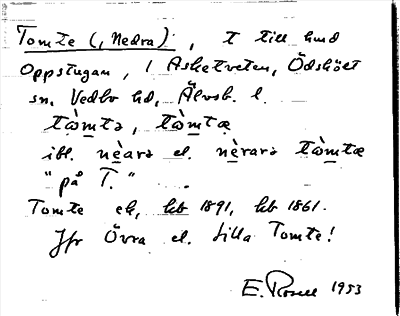 Tomte (, Nedra), t till hmd
Oppstugan, i Asketveten, Ödskölt
sn, Vedbo hd, Älvsb. l.
tὼmtə, tὼmtæ
ibl. nèarə el. nèrarə tὼmtæ
"på T."
Tomte ek, hb 1891, hb 1861.
Jfr Övra el. Lilla Tomte!
E. Rosell 1953